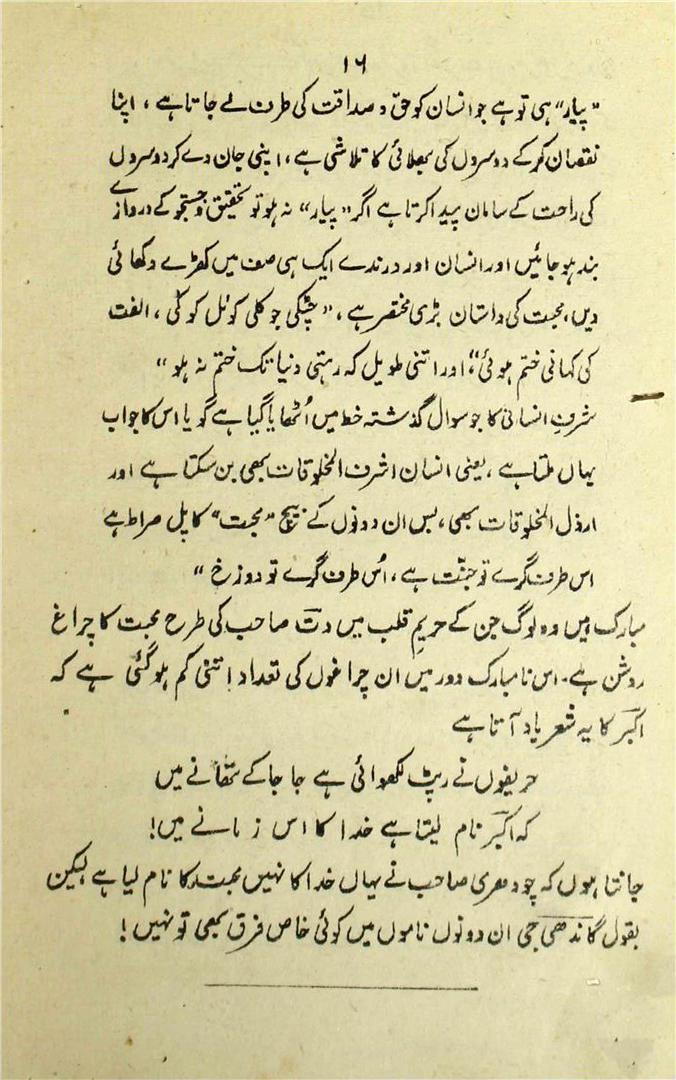 ۱۶
"پیار" ہی تو ہے جو انسان کو حق و صداقت کی طرف لے جاتا ہے ، اپنا
نقصان کر کے دوسروں کی بھلائی کا تلاشی ہے ، اپنی جان دے کر دوسروں
کی راحت کے سامان پیدا کرتا ہے اگر "پیار" نہ ہو تو تحقیق و جستجو کے دروازے
بند ہو جائیں اور انسان اور درندے ایک ہی صف میں کھڑے دکھائی
دیں، محبت کی داستان بڑی مختصر ہے ، "چٹکی جو کلی کوئل کوکی ، الفت
کی کہانی ختم ہوئی"، اور اتنی طویل کہ رہتی دنیا تک ختم نہ ہو "
شرفِ انسانی کا جو سوال گذشتہ خط میں اُٹھایا گیا ہے گویا اس کا جواب
یہاں ملتا ہے ، یعنی انسان اشرف المخلوقات بھی بن سکتا ہے اور
ارذل المخلوقات بھی ، بس ان دونوں کے بیچ "محبت" کا پل صراط ہے
اس طرف گرے تو جنّت ہے ، اُس طرف گرے تو دوزخ "
مبارک ہیں وہ لوگ جن کے حریمِ قلب میں دت صاحب کی طرح محبت کا چراغ
روشن ہے۔ اس نا مبارک دور میں ان چراغوں کی تعداد اِتنی کم ہو گئی ہے کہ
اکبر کا یہ شعر یاد آتا ہے
حریفوں نے رپٹ لکھوائی ہے جا جا کے تھانے میں
کہ اکبر نام لیتا ہے خدا کا اس زمانے میں!
جانتا ہوں کہ چودھری صاحب نے یہاں خدا کا نہیں محبت کا نام لیا ہے لیکن
بقول گاندھی جی ان دونوں ناموں میں کوئی خاص فرق بھی تو نہیں !